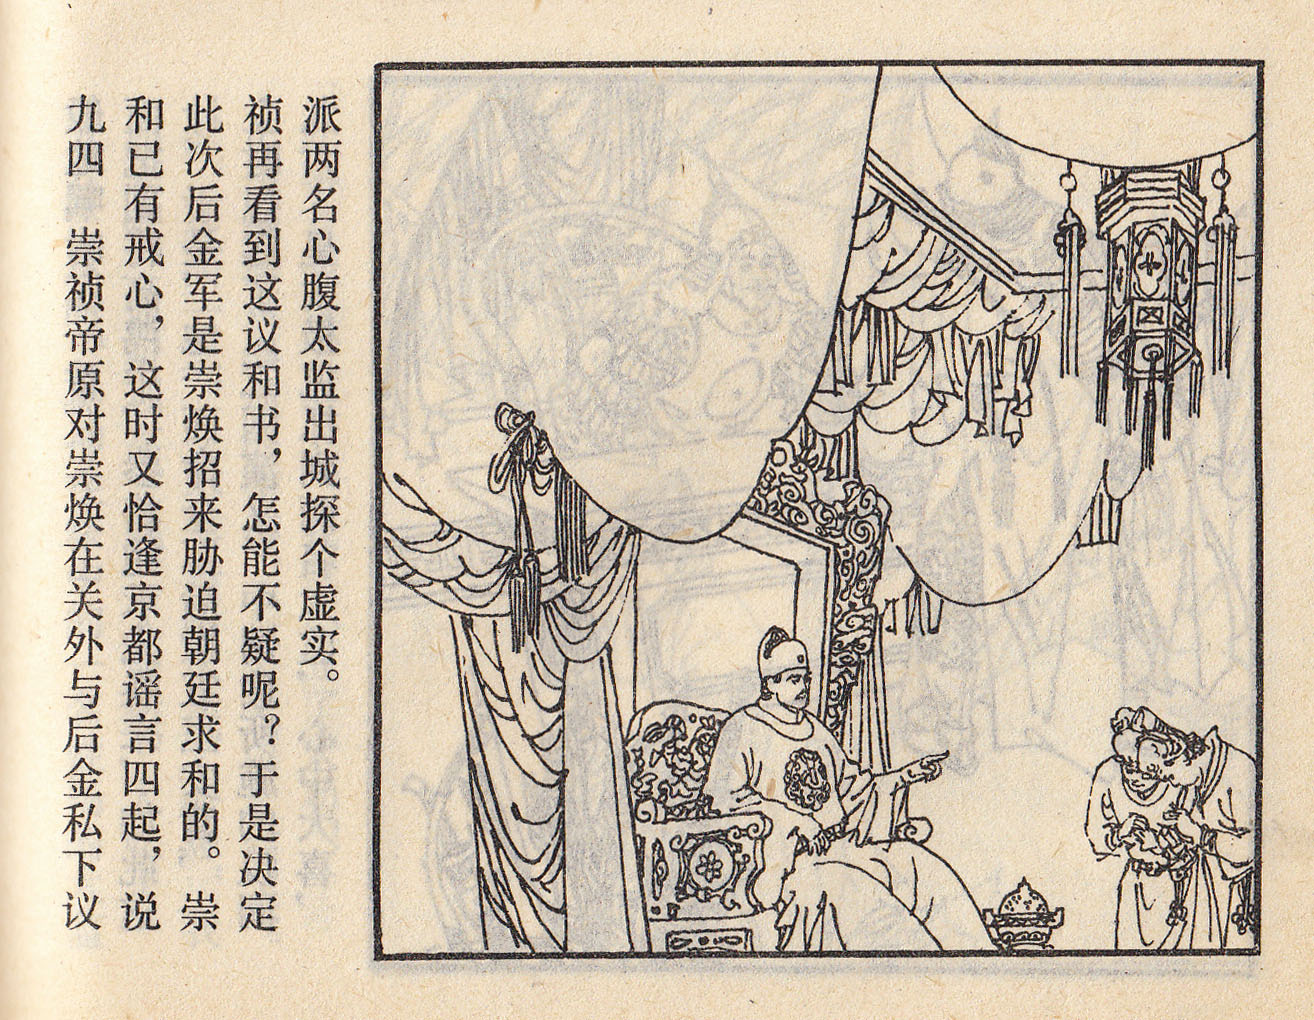 九四 崇祯帝原对崇焕在关外与后金私下议
和已有戒心，这时又恰逢京都谣言四起，说
此次后金军是崇焕招来胁迫朝廷求和的。崇
祯再看到这议和书，怎能不疑呢？于是决定
派两名心腹太监出城探个虚实。